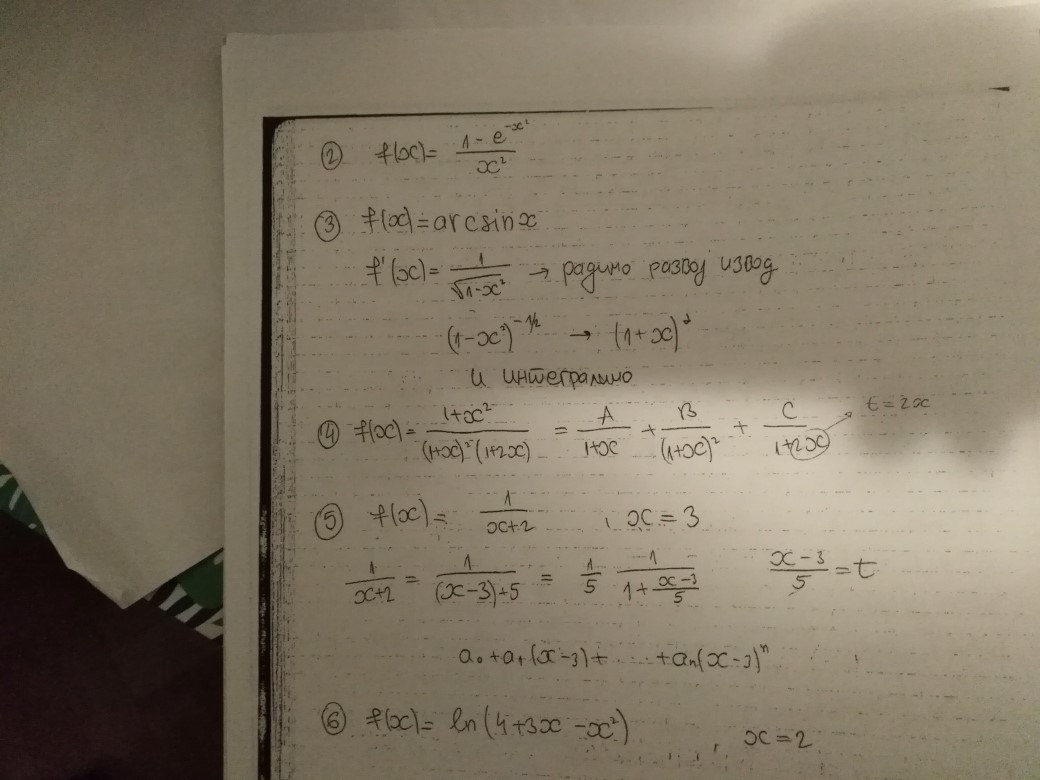 ② f(x) = \frac{1 - e^{-x^2}}{x^2}
③ f(x) = arcsin x
f'(x) = \frac{1}{\sqrt{1-x^2}} → радимо развој извод
(1-x^2)^{-1/2} → (1+x)^α
и интегралимо
④ f(x) = \frac{1+x^2}{(1+x)^2(1+2x)} = \frac{A}{1+x} + \frac{B}{(1+x)^2} + \frac{C}{1+2x} t=2x
⑤ f(x) = \frac{1}{x+2} , x=3
\frac{1}{x+2} = \frac{1}{(x-3)+5} = \frac{1}{5} \frac{1}{1+\frac{x-3}{5}} \frac{x-3}{5} = t
a_0 + a_1(x-3) + ..... + a_n(x-3)^n
⑥ f(x) = ln(4+3x-x^2) , x=2